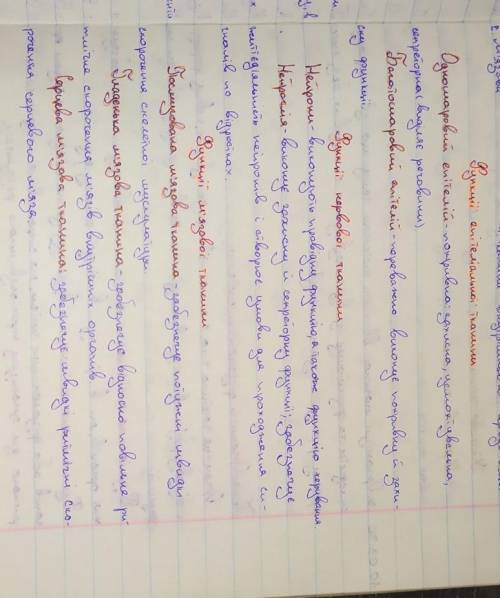 Функції епітеліальної тканини
Одношаровий епітелій - покривна, захисна, всмоктувальна,
секреторна (виділяє речовини)
Багатошаровий епітелій - переважно виконує покривну й захи-
сну функції
Функції нервової тканини
Нейрони - виконують провідну функцію, а також функцію керування
Нейроглія - виконує захисну й секреторну функції; забезпечує
життєдіяльність нейронів і створює умови для проходження си-
гналів по відростках.
Функції м'язової тканини
Посмугована м'язова тканина - забезпечує потужні швидкі
скорочення скелетної мускулатури
Гладенька м'язова тканина - забезпечує відносно повільне ри-
тмічне скорочення м'язів внутрішніх органів
Серцева м'язова тканина: забезпечує швидкі ритмічні ско-
рочення серцевого м'яза